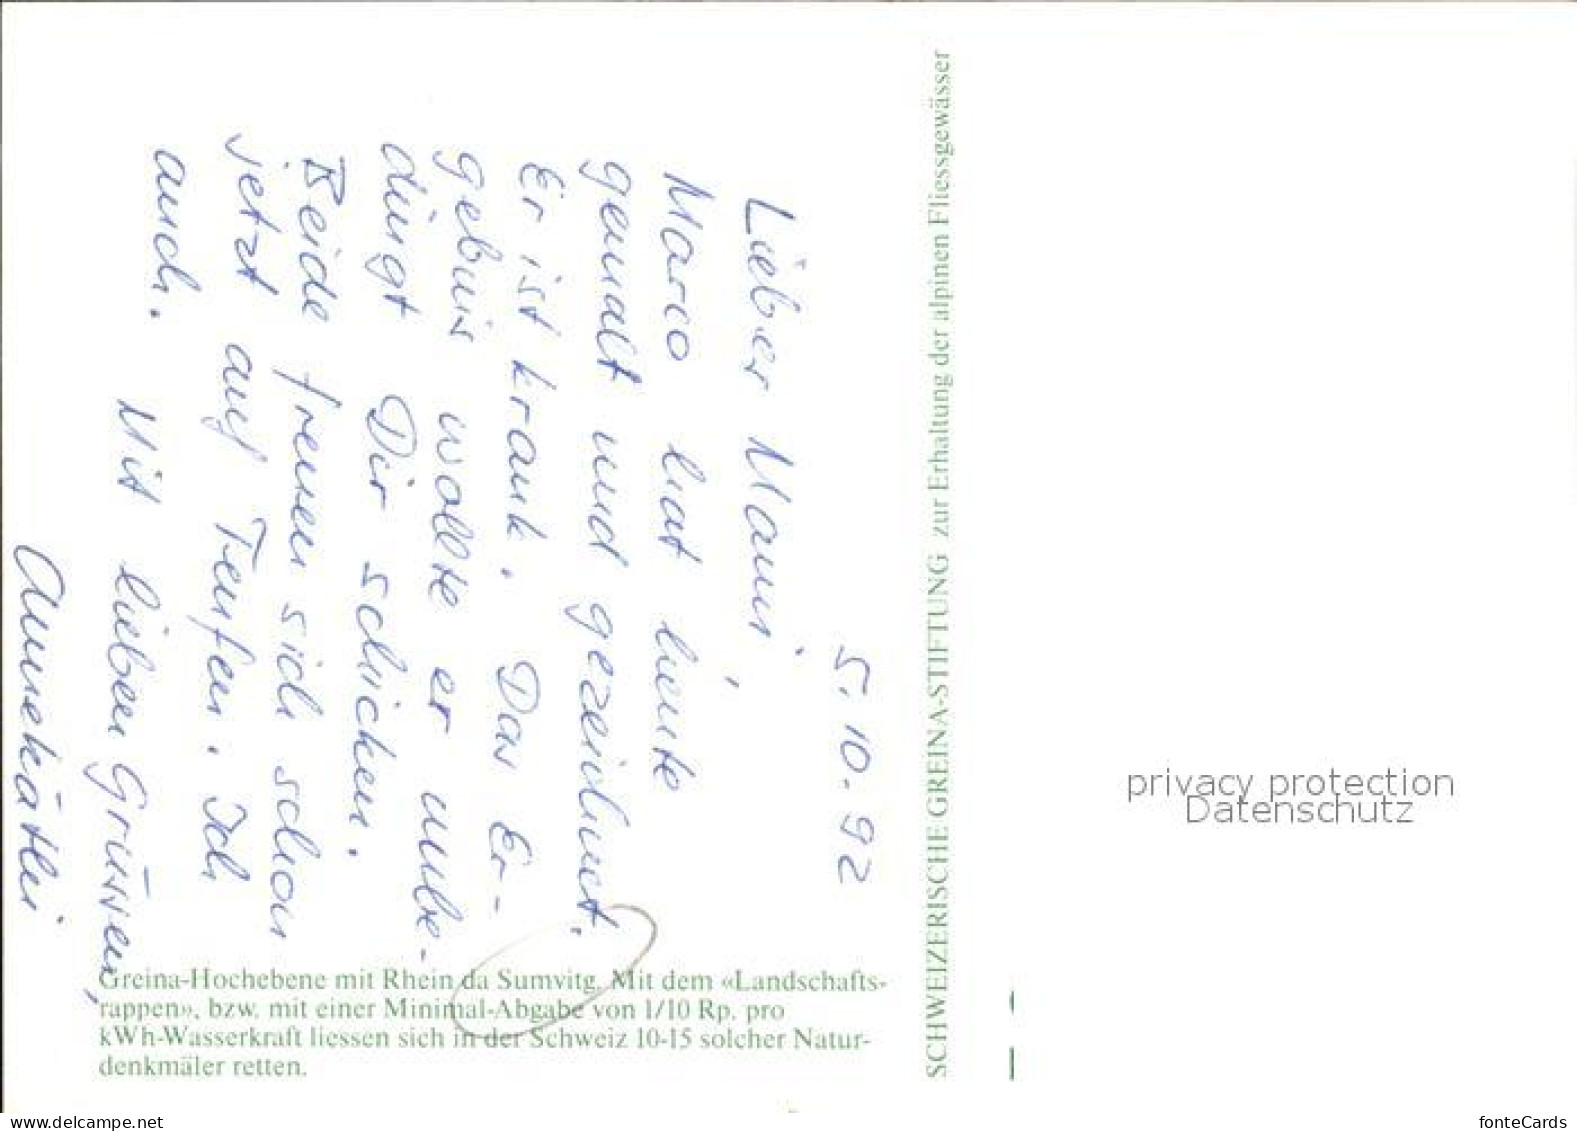 5.10.92
Lieber Mami,
Marco hat heute
gemalt und gezeichnet.
Er ist krank. Das Er-
gebnis wollte er unbe-
dingt Dir schicken.
Beide freuen sich schon
jetzt auf Teufen. Ich
auch.
Mit lieben Grüssen,
Annekäthi
Greina-Hochebene mit Rhein da Sumvitg. Mit dem «Landschafts-
rappen», bzw. mit einer Minimal-Abgabe von 1/10 Rp. pro
kWh-Wasserkraft liessen sich in der Schweiz 10-15 solcher Natur-
denkmäler retten.
SCHWEIZERISCHE GREINA-STIFTUNG zur Erhaltung der alpinen Fliessgewässer
privacy protection
Datenschutz
www.delcampe.net
fonteCards